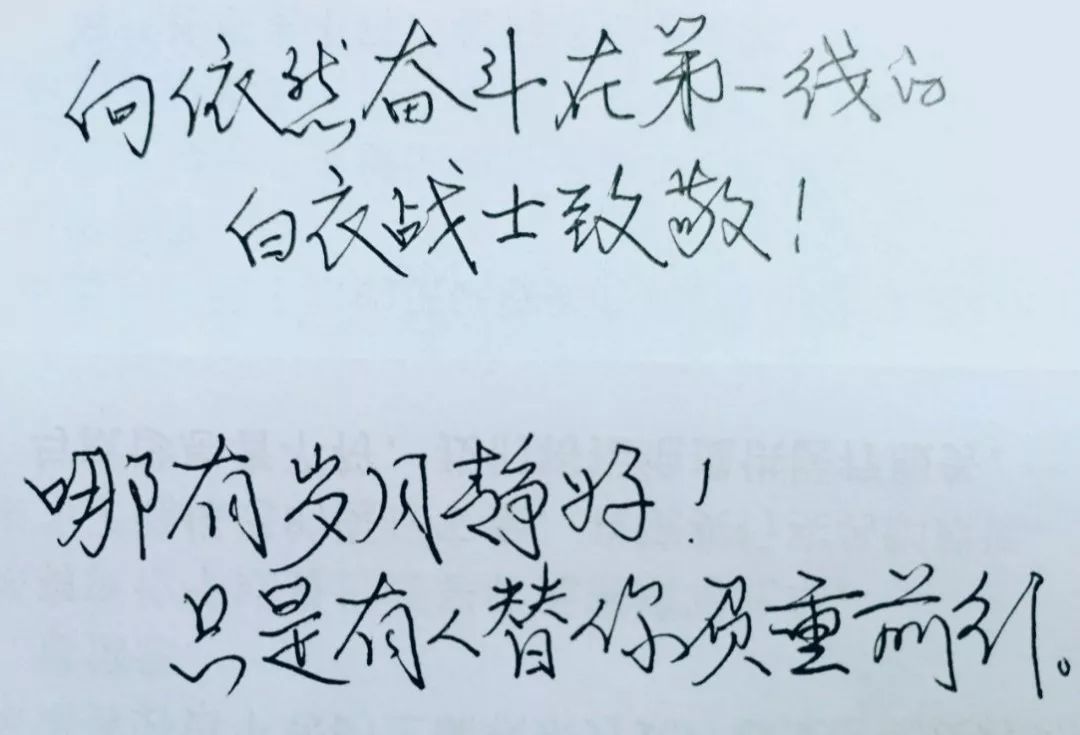 向依然奋斗在第一线的
白衣战士致敬！
哪有岁月静好！
只是有人替你负重前行。